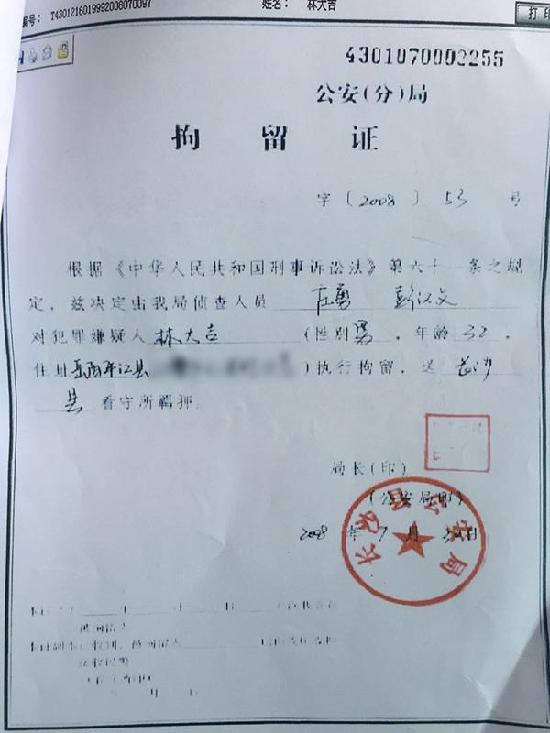 编号: T4301216019992008070097 姓名: 林大吉 打印
4301070002255
公安(分)局
拘留证
字〔2008〕53号
根据《中华人民共和国刑事诉讼法》第六十一条之规
定，兹决定由我局侦查人员 庄勇 彭汉文
对犯罪嫌疑人 林大吉 (性别 男，年龄 32，
住址 岳阳平江县 )执行拘留，送 长沙
县 看守所羁押
局长(印)
(公安局印)
2008 年 7 月 日
长沙县公安局